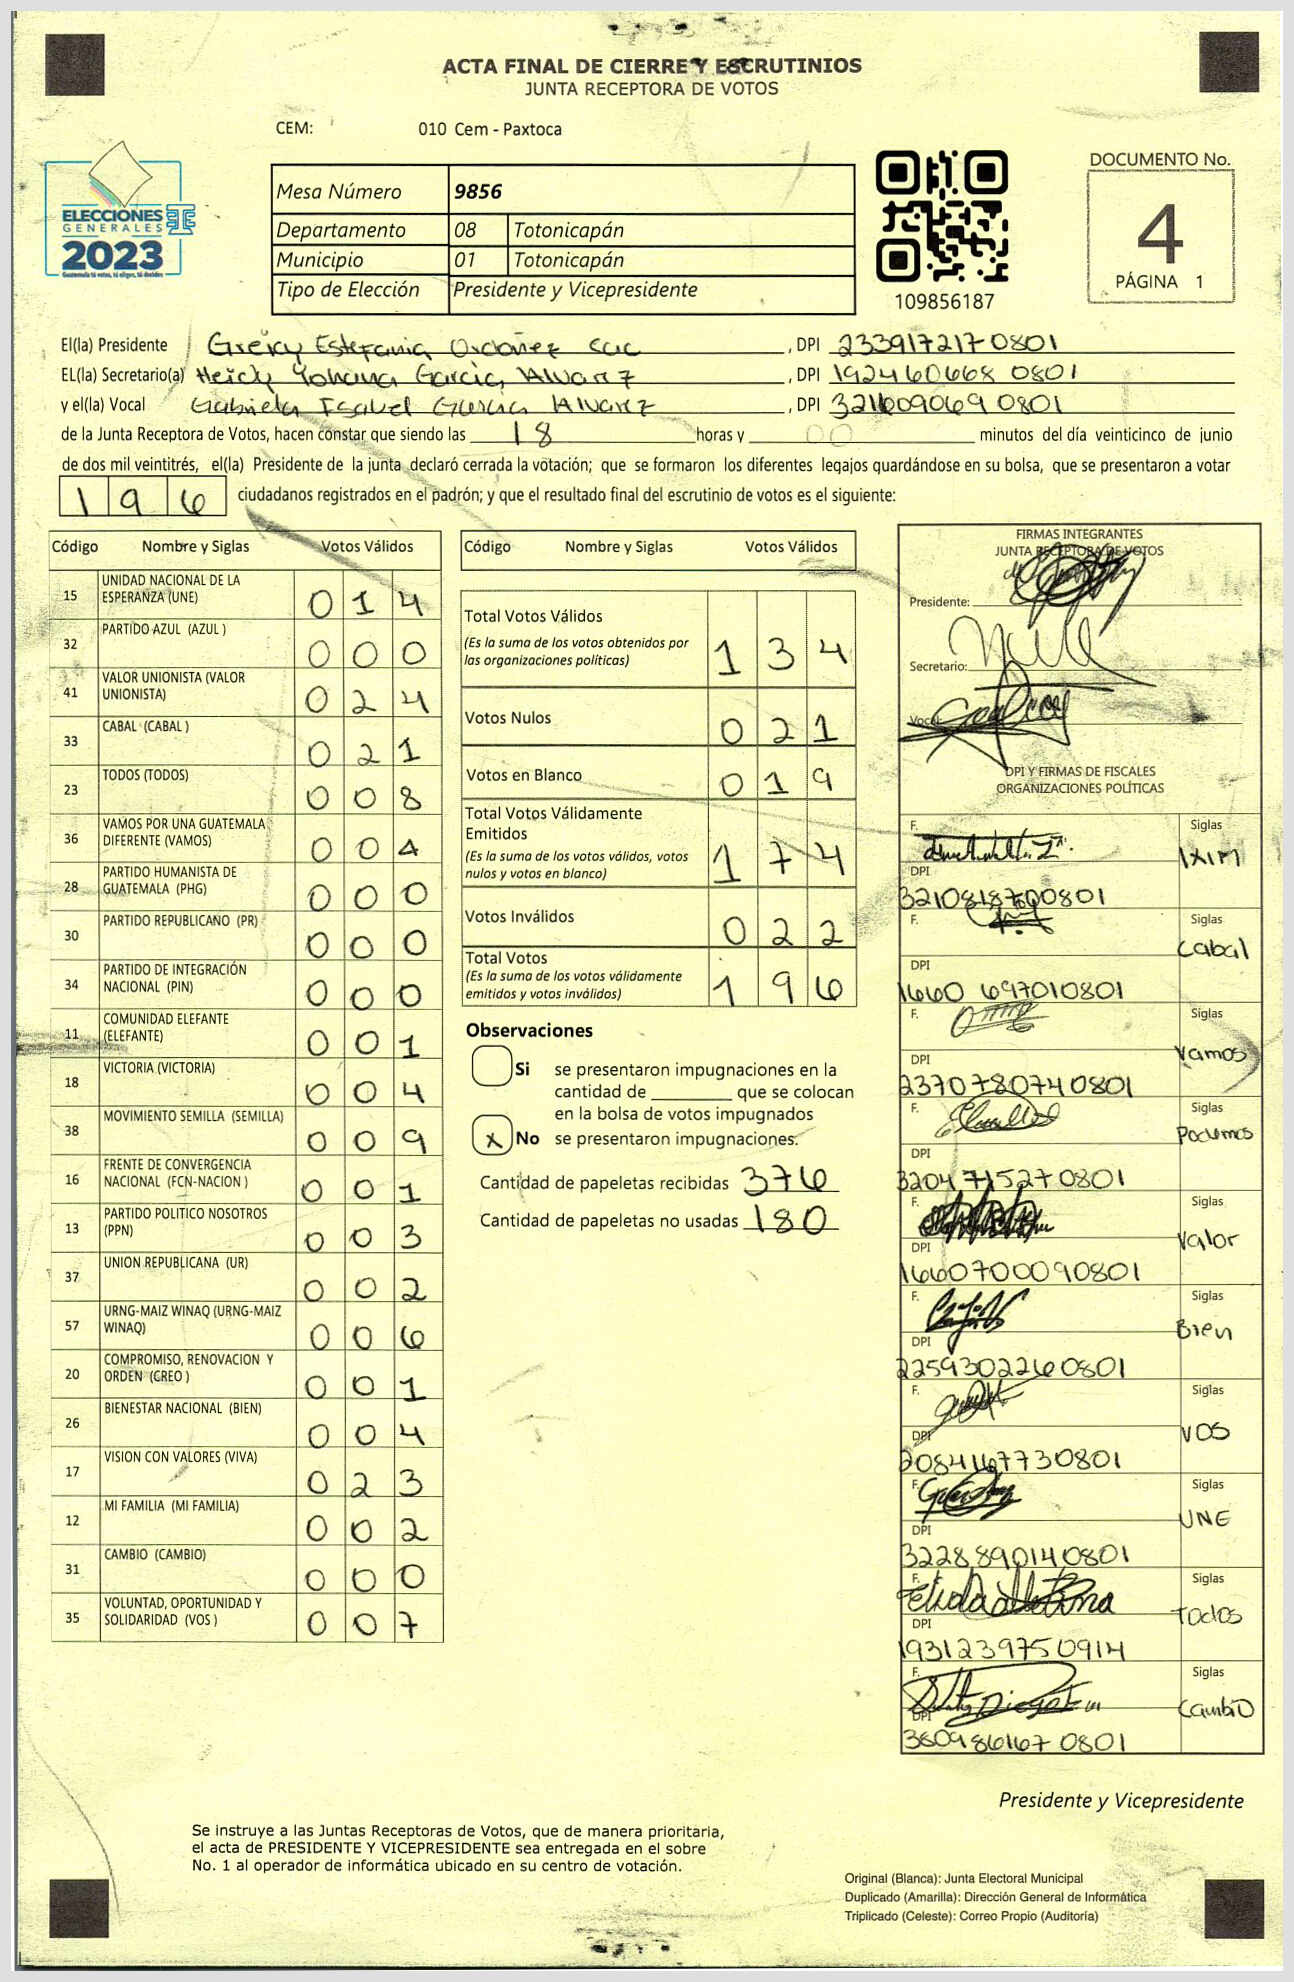 ACTA FINAL DE CIERRE Y ESCRUTINIOS
JUNTA RECEPTORA DE VOTOS
CEM: 010 Cem - Paxtoca
ELECCIONES
GENERALES
2023
Guatemala tú votas, tú eliges, tú decides
Mesa Número 9856
Departamento 08 Totonicapán
Municipio 01 Totonicapán
Tipo de Elección Presidente y Vicepresidente
109856187
DOCUMENTO No.
4
PÁGINA 1
El(la) Presidente Greicy Estefania Ordoñez , DPI 2339172170801
EL(la) Secretario(a) Heidy Yohana Garcia Alvarez , DPI 192460668 0801
y el(la) Vocal Gabriela Isabel Garcia Alvarez , DPI 0801
de la Junta Receptora de Votos, hacen constar que siendo las 18 horas y 00 minutos del día veinticinco de junio
de dos mil veintitrés, el(la) Presidente de la junta declaró cerrada la votación; que se formaron los diferentes legajos guardándose en su bolsa, que se presentaron a votar
196 ciudadanos registrados en el padrón; y que el resultado final del escrutinio de votos es el siguiente:
Código Nombre y Siglas Votos Válidos
15 UNIDAD NACIONAL DE LA ESPERANZA (UNE) 014
32 PARTIDO AZUL (AZUL ) 000
41 VALOR UNIONISTA (VALOR UNIONISTA) 024
33 CABAL (CABAL ) 021
23 TODOS (TODOS) 008
36 VAMOS POR UNA GUATEMALA DIFERENTE (VAMOS) 004
28 PARTIDO HUMANISTA DE GUATEMALA (PHG) 000
30 PARTIDO REPUBLICANO (PR) 000
34 PARTIDO DE INTEGRACIÓN NACIONAL (PIN) 000
11 COMUNIDAD ELEFANTE (ELEFANTE) 001
18 VICTORIA (VICTORIA) 004
38 MOVIMIENTO SEMILLA (SEMILLA) 009
16 FRENTE DE CONVERGENCIA NACIONAL (FCN-NACION ) 001
13 PARTIDO POLITICO NOSOTROS (PPN) 003
37 UNION REPUBLICANA (UR) 002
57 URNG-MAIZ WINAQ (URNG-MAIZ WINAQ) 006
20 COMPROMISO, RENOVACION Y ORDEN (CREO ) 001
26 BIENESTAR NACIONAL (BIEN) 004
17 VISION CON VALORES (VIVA) 023
12 MI FAMILIA (MI FAMILIA) 002
31 CAMBIO (CAMBIO) 000
35 VOLUNTAD, OPORTUNIDAD Y SOLIDARIDAD (VOS ) 007
Código Nombre y Siglas Votos Válidos
Total Votos Válidos 134
(Es la suma de los votos obtenidos por
las organizaciones políticas)
Votos Nulos 021
Votos en Blanco 019
Total Votos Válidamente
Emitidos 174
(Es la suma de los votos válidos, votos
nulos y votos en blanco)
Votos Inválidos 022
Total Votos 196
(Es la suma de los votos válidamente
emitidos y votos inválidos)
Observaciones
Si se presentaron impugnaciones en la
cantidad de ________ que se colocan
en la bolsa de votos impugnados
x No se presentaron impugnaciones.
Cantidad de papeletas recibidas 376
Cantidad de papeletas no usadas 180
FIRMAS INTEGRANTES
JUNTA RECEPTORA DE VOTOS
Presidente:
Secretario:
Vocal:
DPI Y FIRMAS DE FISCALES
ORGANIZACIONES POLÍTICAS
F. Siglas
IXIM
DPI
3210818700801
F. Siglas
Cabal
DPI
1660 697010801
F. Siglas
Vamos
DPI
2370780740801
F. Siglas
Podemos
DPI
3204715270801
F. Siglas
Valor
DPI
1660700090801
F. Siglas
Bien
DPI
2259302260801
F. Siglas
VOS
DPI
F. Siglas
UNE
DPI
3228890140801
F. Siglas
Todos
DPI
1931239750914
F. Siglas
Cambio
DPI
Presidente y Vicepresidente
Se instruye a las Juntas Receptoras de Votos, que de manera prioritaria,
el acta de PRESIDENTE Y VICEPRESIDENTE sea entregada en el sobre
No. 1 al operador de informática ubicado en su centro de votación.
Original (Blanca): Junta Electoral Municipal
Duplicado (Amarilla): Dirección General de Informática
Triplicado (Celeste): Correo Propio (Auditoría)